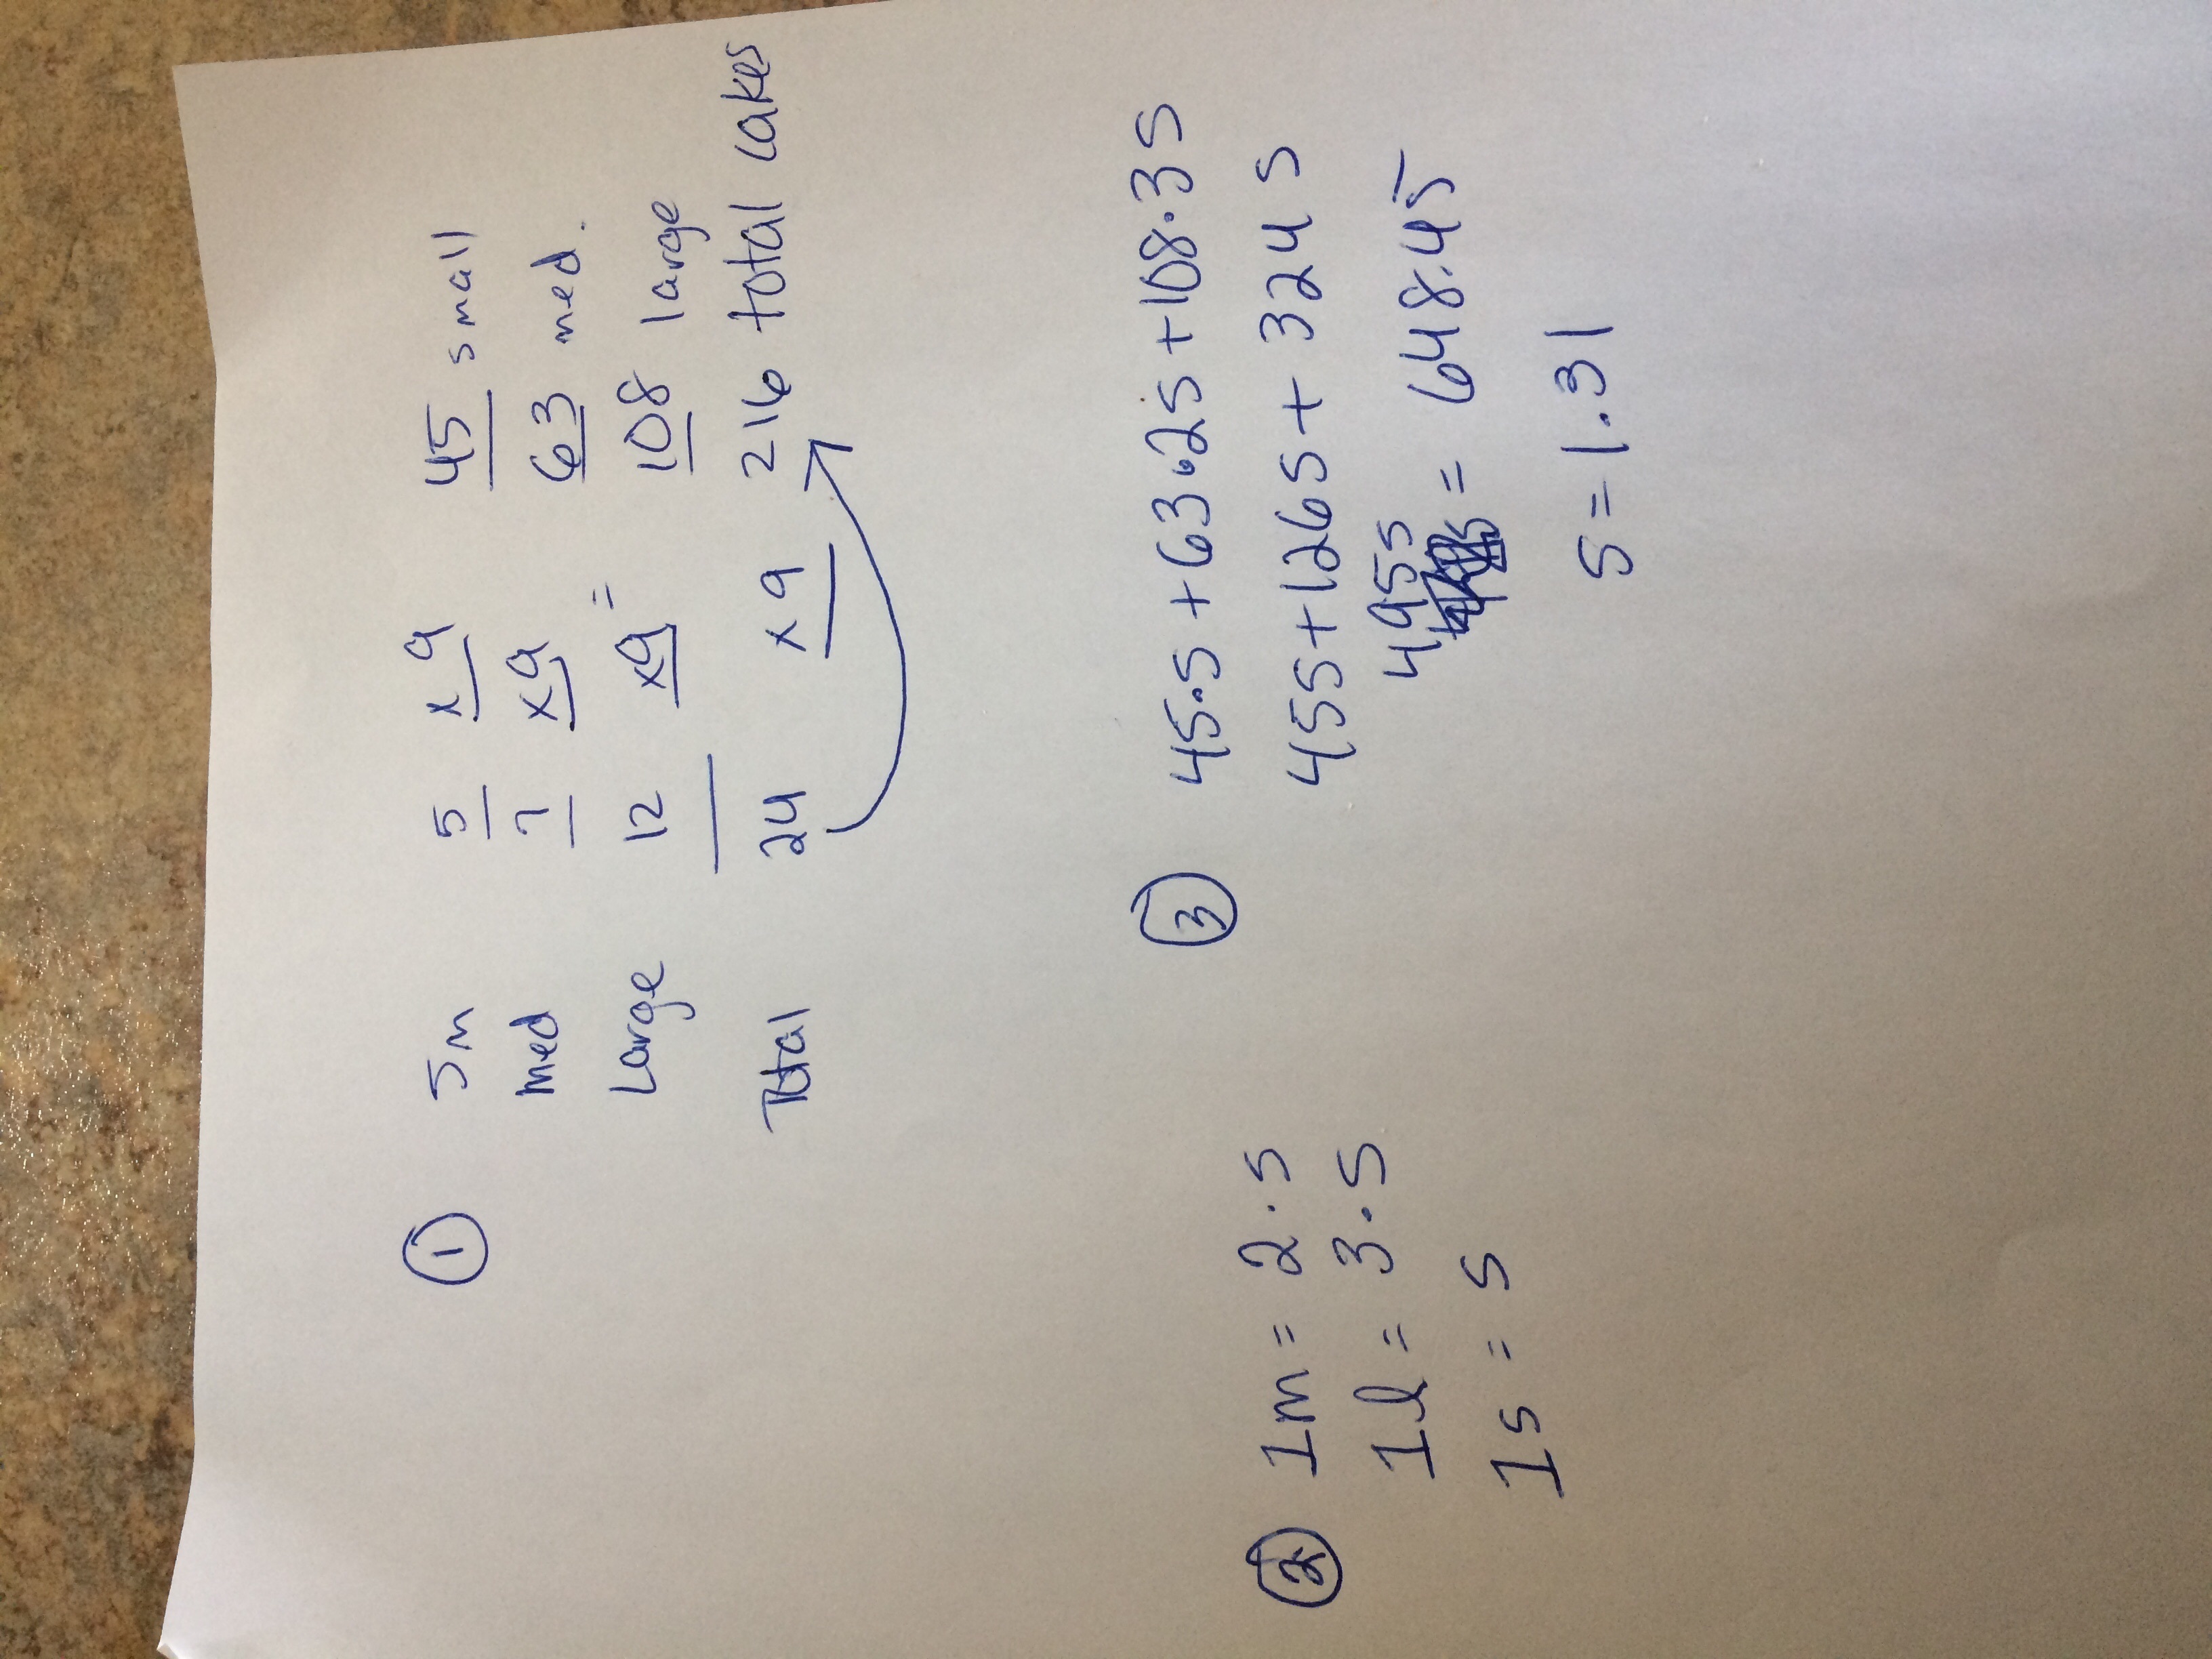 ① Sm 5 x 9 45 small
Med 7 x9 63 med.
Large 12 x9 = 108 large
Total 24 x 9 216 total cakes
② 1m = 2.s
1l = 3.s
1s = s
③ 45.s + 63.2s + 108.3s
45s + 126s + 324s
495s = 648.45
s = 1.31